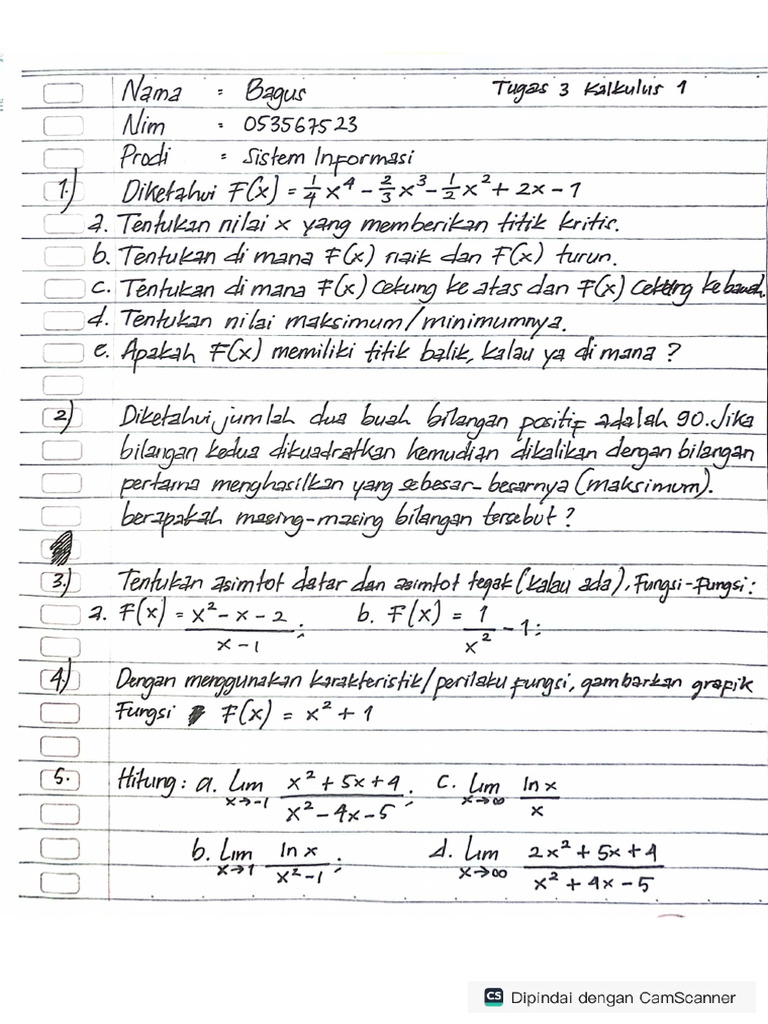 Nama : Bagus Tugas 3 Kalkulus 1
Nim : 053567523
Prodi : Sistem Informasi
1.) Diketahui F(x) = 1/4 x⁴ - 2/3 x³ - 1/2 x² + 2x - 1
a. Tentukan nilai x yang memberikan titik kritis.
b. Tentukan di mana F(x) naik dan F(x) turun.
c. Tentukan di mana F(x) cekung ke atas dan F(x) cekung ke bawah.
d. Tentukan nilai maksimum/minimumnya.
e. Apakah F(x) memiliki titik balik, kalau ya di mana ?
2) Diketahui jumlah dua buah bilangan positif adalah 90. Jika
bilangan kedua dikuadratkan kemudian dikalikan dengan bilangan
pertama menghasilkan yang sebesar-besarnya (maksimum).
berapakah masing-masing bilangan tersebut ?
3.) Tentukan asimtot datar dan asimtot tegak (kalau ada), Fungsi-fungsi :
a. F(x) = (x² - x - 2)/(x - 1) ; b. F(x) = 1/x² - 1 ;
4.) Dengan menggunakan karakteristik/perilaku fungsi, gambarkan grafik
Fungsi F(x) = x² + 1
5. Hitung : a. Lim x→-1 (x² + 5x + 4)/(x² - 4x - 5) ; c. Lim x→∞ ln x/x
b. Lim x→1 ln x/(x² - 1) ; d. Lim x→∞ (2x² + 5x + 4)/(x² + 4x - 5)
CS Dipindai dengan CamScanner